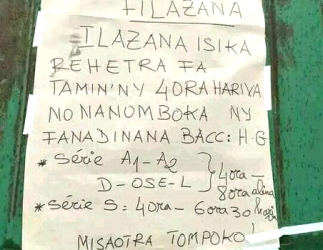 FILAZANA
ILAZANA ISIKA
REHETRA FA
TAMIN'NY 4 ORA HARIVA
NO NANOMBOKA NY
FANADINANA BACC: H-G
* Série A1-A2
D-OSE-L } 4ora - 8ora alina
* Série S: 4ora - 6ora30 hariva
MISAOTRA TOMPOKO!